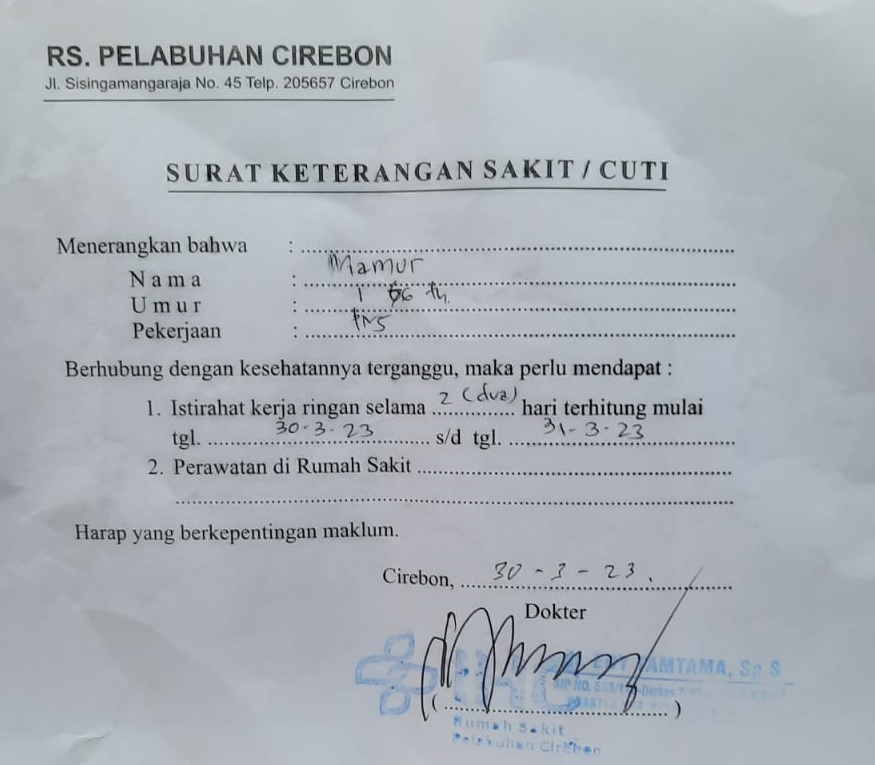 RS. PELABUHAN CIREBON
Jl. Sisingamangaraja No. 45 Telp. 205657 Cirebon
SURAT KETERANGAN SAKIT / CUTI
Menerangkan bahwa : ........................
N a m a : Mamur
U m u r : 56 th.
Pekerjaan : PNS
Berhubung dengan kesehatannya terganggu, maka perlu mendapat :
1. Istirahat kerja ringan selama 2 (dua) hari terhitung mulai
tgl. 30-3-23 s/d tgl. 31-3-23
2. Perawatan di Rumah Sakit ........................
Harap yang berkepentingan maklum.
Cirebon, 30-3-23.
Dokter
AMTAMA, Sp S
SIP NO.
(........................)
Rumah Sakit
Pelabuhan Cirebon